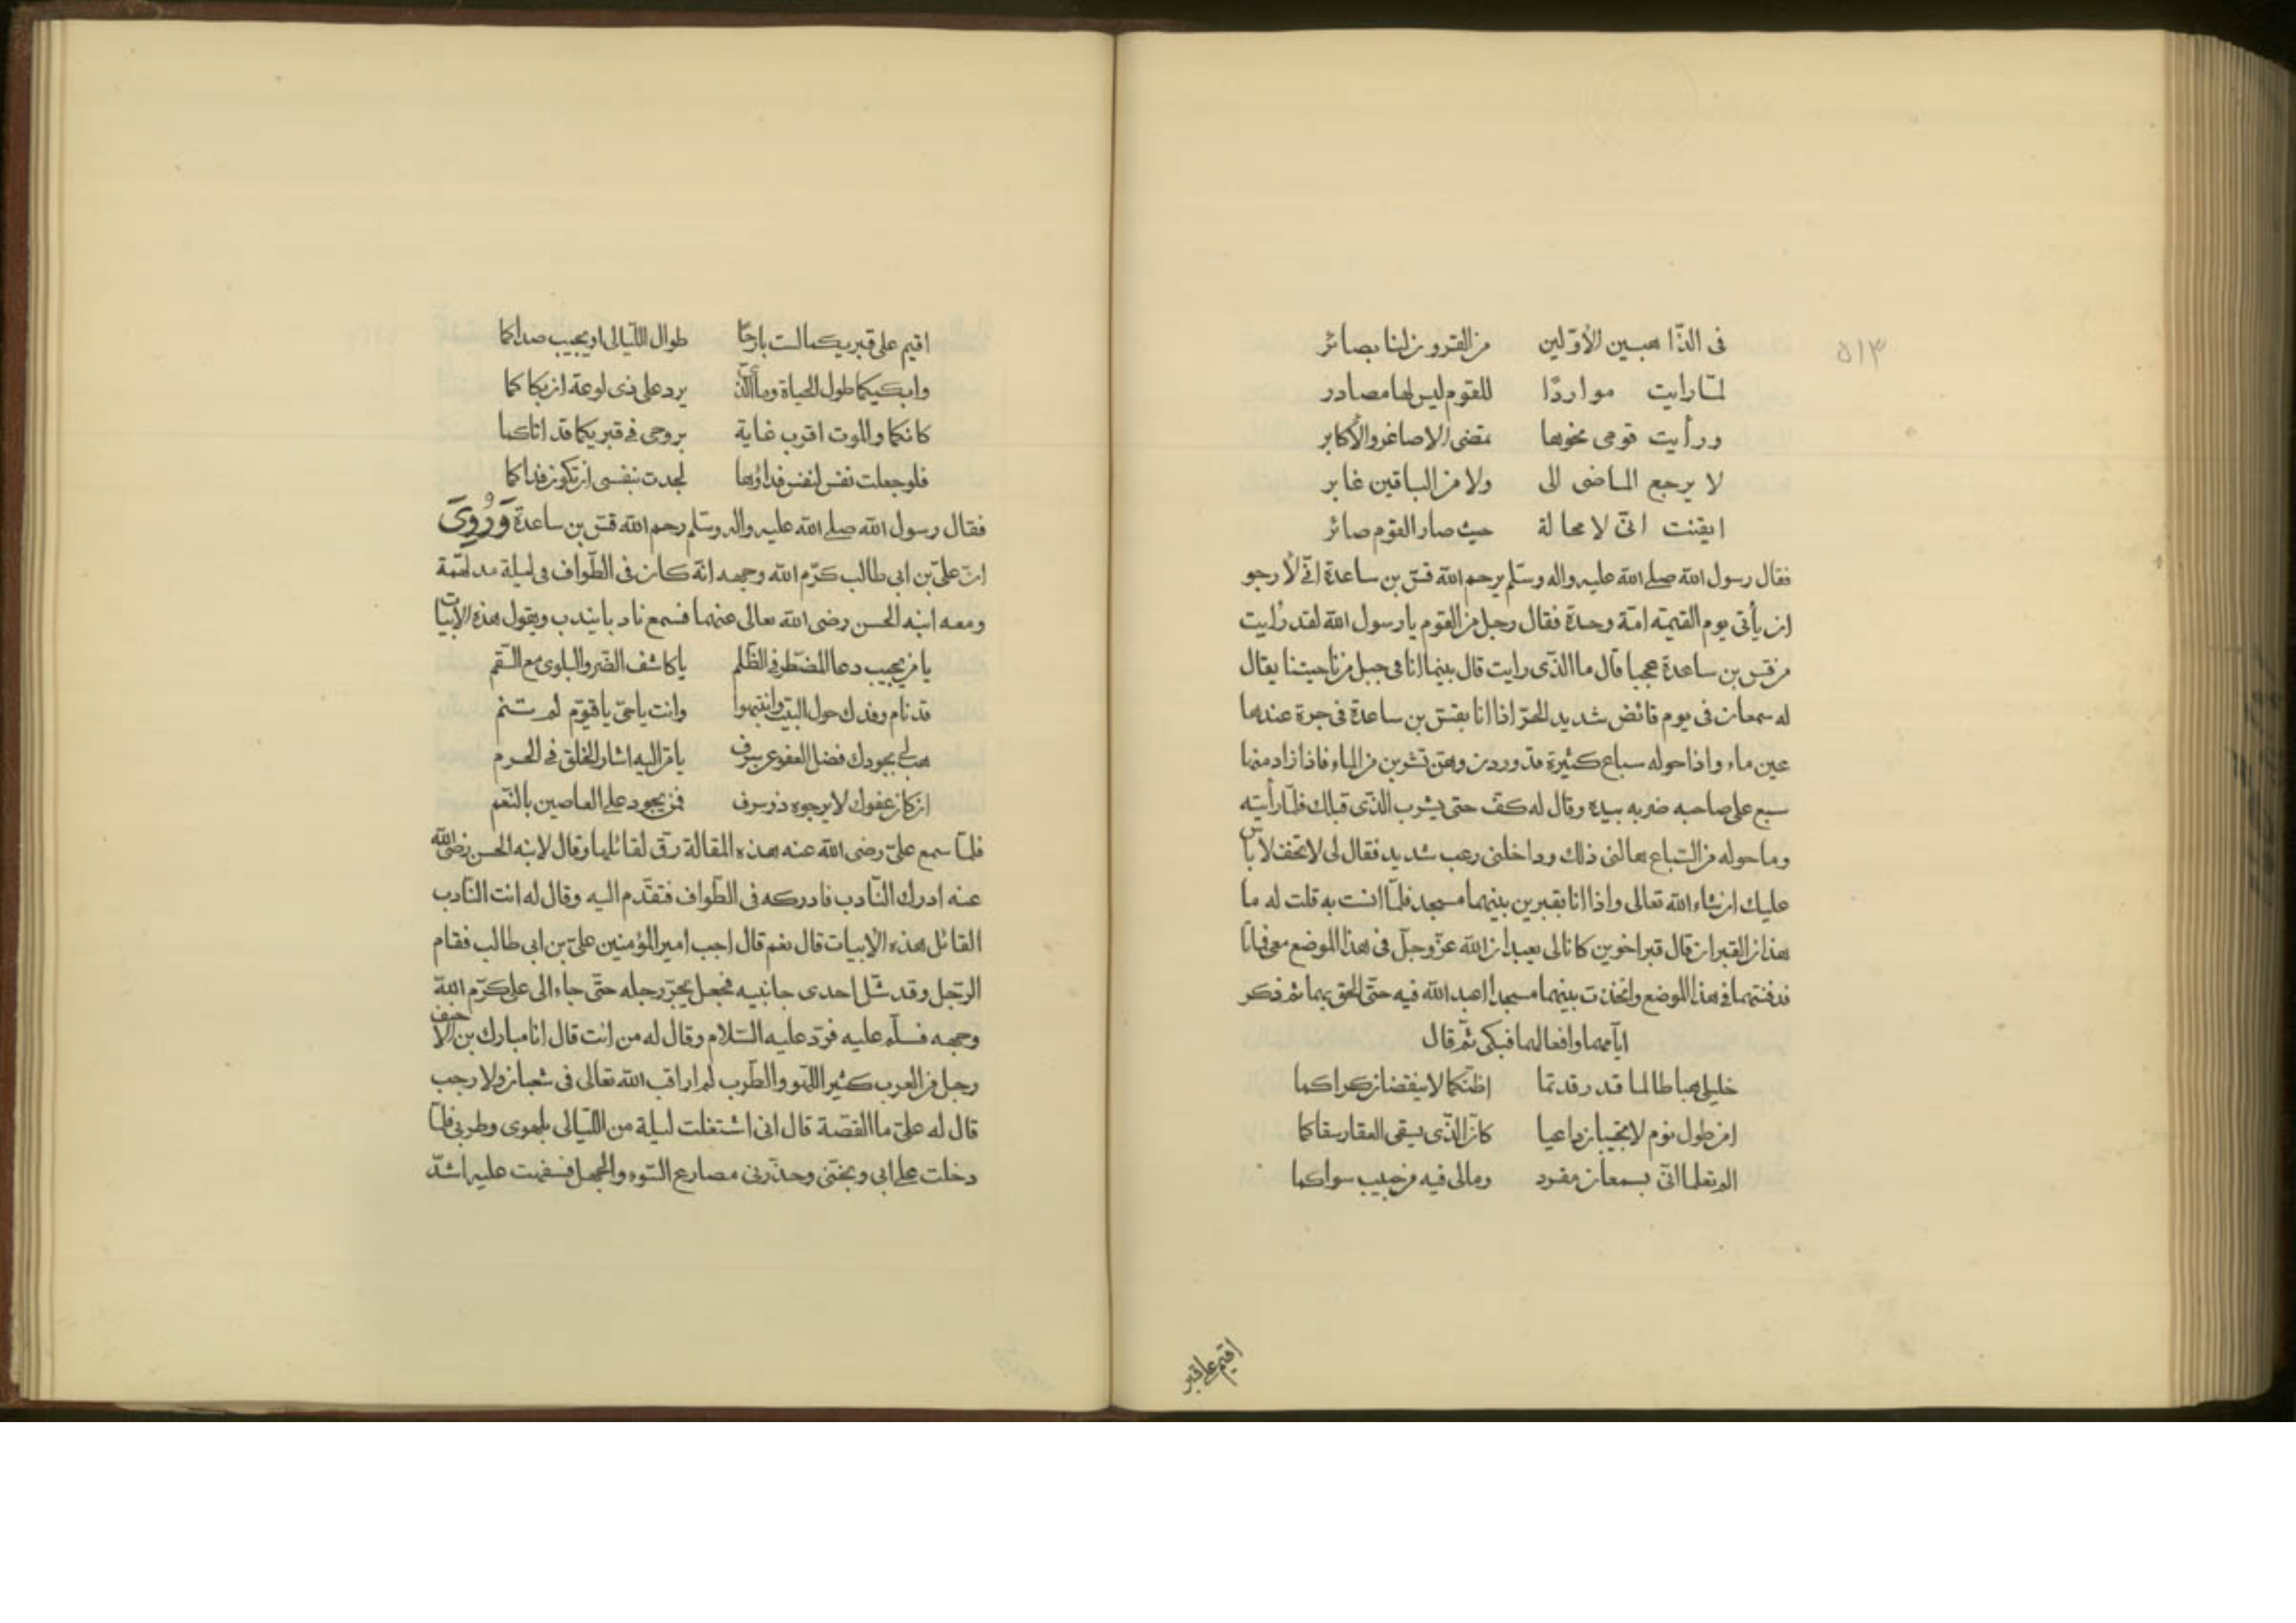 ٥١٣
فى الذّاهبين الأوّلين من القرون لنا بصائر
لمّا رايت مواردًا للقوم ليس لها مصادر
ورأيت قومى نحوها تمضى الاصاغر والأكابر
لا يرجع الماضى الى ولا من الباقين غابر
ايقنت انّى لا محالة حيث صار القوم صائر
فقال رسول الله صلى الله عليه واله وسلم يرحم الله قسّ بن ساعدة انّى لأرجو
ان يأتى يوم القيمة امّة وحدة فقال رجل من القوم يا رسول الله لقد رأيت
من قس بن ساعدة عجبا قال ما الذّى رايت قال بينما انا فى جبل من ناحيتنا يقال
له سمعان فى يوم قائض شديد الحرّ اذا انا بقسّ بن ساعدة فى جرة عندها
عين ماء واذا حوله سباع كثيرة قد وردن وهنّ تشربن من الماء فاذا زاد منها
سبع على صاحبه ضربه بيده وقال له كفّ حتى يشرب الذّى قبلك فلمّا رأيته
وما حوله من السّباع هالنى ذلك وداخلنى رعب شديد فقال لى لا تخف لا بأس
عليك ان شاء الله تعالى واذا انا بقبرين بينهما مسجد فلمّا انست به قلت له ما
هذان القبران قال قبر اخوين كانا لى يعبدان الله عزّ وجلّ فى هذا الموضع معى فماتا
فدفنتهما فى هذا الموضع واتخذت بينهما مسجدا اعبد الله فيه حتّى الحق بهما ثم ذكر
ايّامهما وافعالهما فبكى ثمّ قال
خليلى هبا طالما قد رقدتما اظنّكما لا ينقضان كراكما
امن طول نوم لا تجيبان داعيا كان الذّى يسقى العقار سقاكما
الم تعلما انّى بسمعان مفرد ومالى فيه من حبيب سواكما
اقيم على قبر
اقيم على قبريكما لست بارحًا طوال اللّيالى او يجيب صداكما
وابكيكما طول الحياة وما الّذى يرد على ذى لوعة ان بكاكما
كانكما والموت اقرب غاية بروحى فى قبريكما قد اتاكما
فلو جعلت نفس لنفس فداؤها لجدت بنفسى ان تكون فداكما
فقال رسول الله صلى الله عليه واله وسلم رحم الله قسّ بن ساعدة وَرُوِىَ
انّ علىّ بن ابى طالب كرّم الله وجهه انّه كان فى الطّواف فى ليلة مدلهمّة
ومعه ابنه الحسن رضى الله تعالى عنهما فسمع نادبا يندب ويقول هذه الابيات
يا من يجيب دعا المضطر فى الظّلم يا كاشف الضّر والبلوى مع السّقم
قد نام وفدك حول البيت وانتبهوا وانت يا حىّ يا قيّوم لم تنم
هب لى بجودك فضل العفو عن سرف يا من اليه اشار الخلق فى الحرم
ان كان عفوك لا يرجوه ذو سرف فمن يجود على العاصين بالنّعم
فلمّا سمع علىّ رضى الله عنه هذه المقالة رقّ لقائلها وقال لابنه الحسن رضى الله
عنه ادرك النّادب فادركه فى الطّواف فتقدّم اليه وقال له انت النّادب
القائل هذه الابيات قال نعم قال اجب امير المؤمنين علىّ بن ابى طالب فقام
الرّجل وقد شّل احدى جانبيه فجعل يجرّ رجله حتّى جاء الى على كرّم الله
وجهه فسلّم عليه فردّ عليه السّلام وقال له من انت قال انا مبارك بن الاحنف
رجل من العرب كثير اللّهو والطّرب لم اراقب الله تعالى فى شعبان ولا رجب
قال له علىّ ما القصّة قال انى اشتغلت ليلة من اللّيالى بلهوى وطربى فلمّا
دخلت على ابى وبختى وحذّرنى مصارع السّوء والجهل فسفهت عليه اشدّ